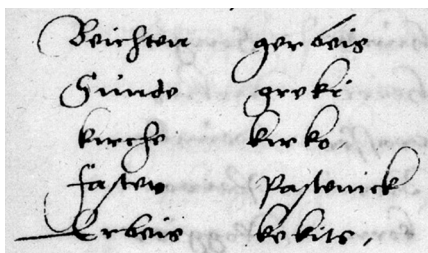 Beichten gerbeis
Sünde greki
kirche kirko
fasten Pastenick
Erbeis kekits,